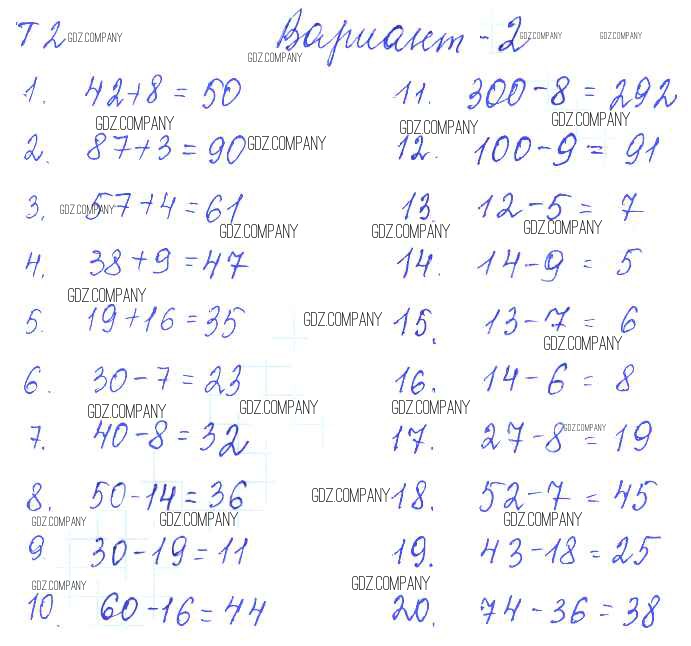 Т 2 GDZ.COMPANY Вариант - 2 GDZ.COMPANY GDZ.COMPANY
GDZ.COMPANY
1. 42+8 = 50
GDZ.COMPANY
2. 87+3 = 90 GDZ.COMPANY
3. GDZ.COMPANY 57+4 = 61
GDZ.COMPANY
4. 38+9 = 47
GDZ.COMPANY
5. 19+16 = 35 GDZ.COMPANY
6. 30-7 = 23
GDZ.COMPANY GDZ.COMPANY
7. 40-8 = 32
8. 50-14 = 36
GDZ.COMPANY GDZ.COMPANY
9. 30-19 = 11
GDZ.COMPANY
10. 60-16 = 44
11. 300-8 = 292
GDZ.COMPANY GDZ.COMPANY
12. 100-9 = 91
13. 12-5 = 7
GDZ.COMPANY GDZ.COMPANY
14. 14-9 = 5
15. 13-7 = 6
GDZ.COMPANY
16. 14-6 = 8
GDZ.COMPANY
17. 27-8 GDZ.COMPANY = 19
GDZ.COMPANY 18. 52-7 = 45
GDZ.COMPANY
19. 43-18 = 25
GDZ.COMPANY
20. 74-36 = 38